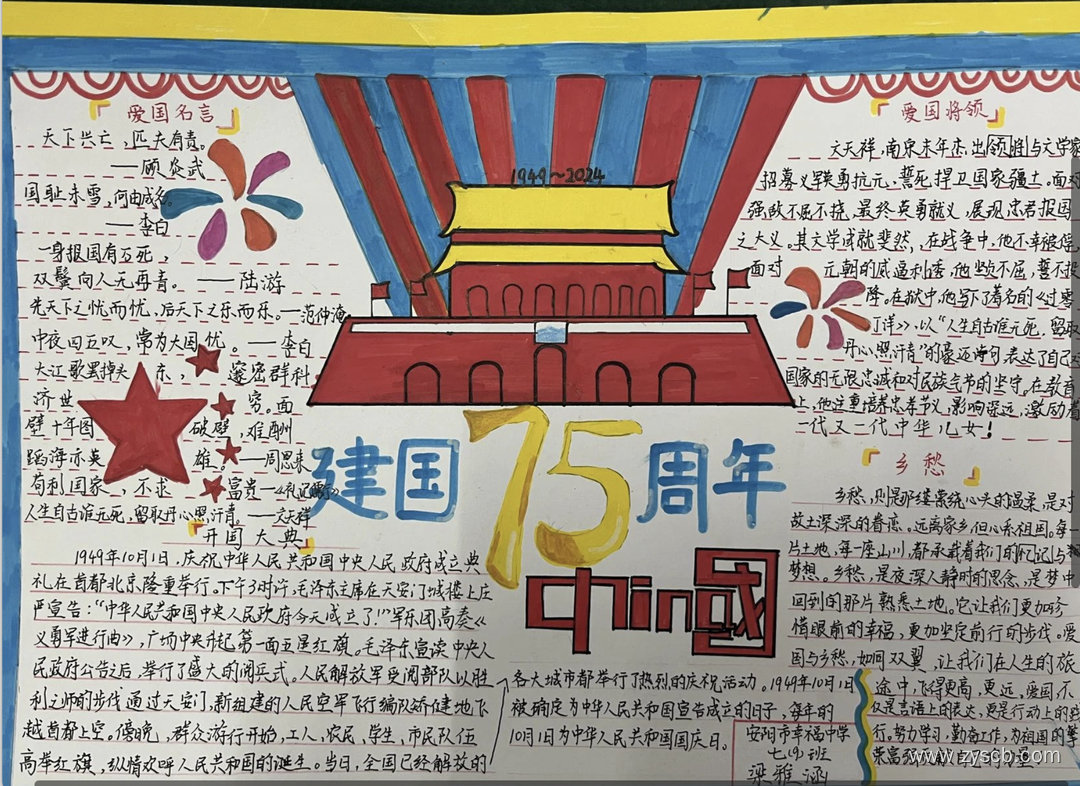 爱国名言
天下兴亡,匹夫有责。
——顾炎武
国耻未雪,何由成名。
——李白
一身报国有万死,
双鬓向人无再青。——陆游
先天下之忧而忧,后天下之乐而乐。—范仲淹
中夜四五叹,常为大国忧。——李白
大江歌罢掉头东,邃密群科
济世穷。面
壁十年图破壁,难酬
蹈海亦英雄。——周恩来
苟利国家,不求富贵—《礼记儒行》
人生自古谁无死,留取丹心照汗青。—文天祥
开国大典
1949年10月1日,庆祝中华人民共和国中央人民政府成立典
礼在首都北京隆重举行。下午3时许,毛泽东主席在天安门城楼上庄
严宣告:“中华人民共和国中央人民政府今天成立了!”军乐团高奏《
义勇军进行曲》,广场中央升起第一面五星红旗。毛泽东宣读中央人
民政府公告后,举行了盛大的阅兵式。人民解放军受阅部队以胜
利之师的步伐通过天安门,新组建的人民空军飞行编队矫健地飞
越首都上空。傍晚,群众游行开始,工人、农民、学生、市民队伍
高举红旗,纵情欢呼人民共和国的诞生。当日,全国已经解放的
各大城市都举行了热烈的庆祝活动。1949年10月1日
被确定为中华人民共和国宣告成立的日子,每年的
10月1日为中华人民共和国国庆日。
1949~2024
建国75周年
China國
安阳市幸福中学
七(9)班
梁雅涵
爱国将领
文天祥,南宋末年杰出领胜与文学家
招募义军英勇抗元,誓死捍卫国家疆土。面对
强敌不屈不挠,最终英勇就义,展现忠君报国
之大义。其文学成就斐然,在战争中,他不幸被俘,
面对元朝的威逼利诱,他坚贞不屈,誓不投
降。在狱中,他写下了著名的《过零
丁洋》,以“人生自古谁无死,留取
丹心照汗青”的豪迈诗句,表达了自己对
国家的无限忠诚和对民族气节的坚守。在教育
上,他注重培养忠孝节义,影响深远,激励着
一代又一代中华儿女!
乡愁
乡愁,则是那缕萦绕心头的温柔,是对
故土深深的眷恋。远离家乡,但心系祖国。每一
片土地,每一座山川,都承载着我们的记忆与
梦想。乡愁,是夜深人静时的思念,是梦中
回到的那片熟悉土地。它让我们更加珍
惜眼前的幸福,更加坚定前行的步伐。爱
国与乡愁,如同双翼,让我们在人生的旅
途中,飞得更高,更远,爱国不
仅是言语上的表达,更是行动上的践
行。努力学习,勤奋工作,为祖国的繁
荣富强
www.zyscb.com